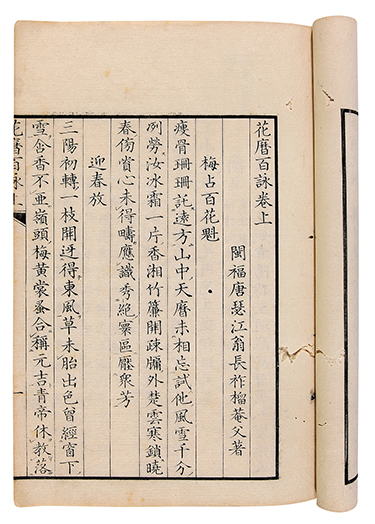 花曆百詠卷上
閩福唐瑟江翁長祚榴菴父著
梅占百花魁
瘦骨珊珊託遠方山中天曆未相忘試他風雪千分
冽勞汝冰霜一片香湘竹簾開疎牖外楚雲寒鎖曉
春傍賞心未得疇應識秀絕寰區壓眾芳
迎春放
三陽初轉一枝開迓得東風草未胎出色曾經窗下
雪含香不亞嶺頭梅黃裳蚤合稱元吉青帝休教落
花曆百詠上
一